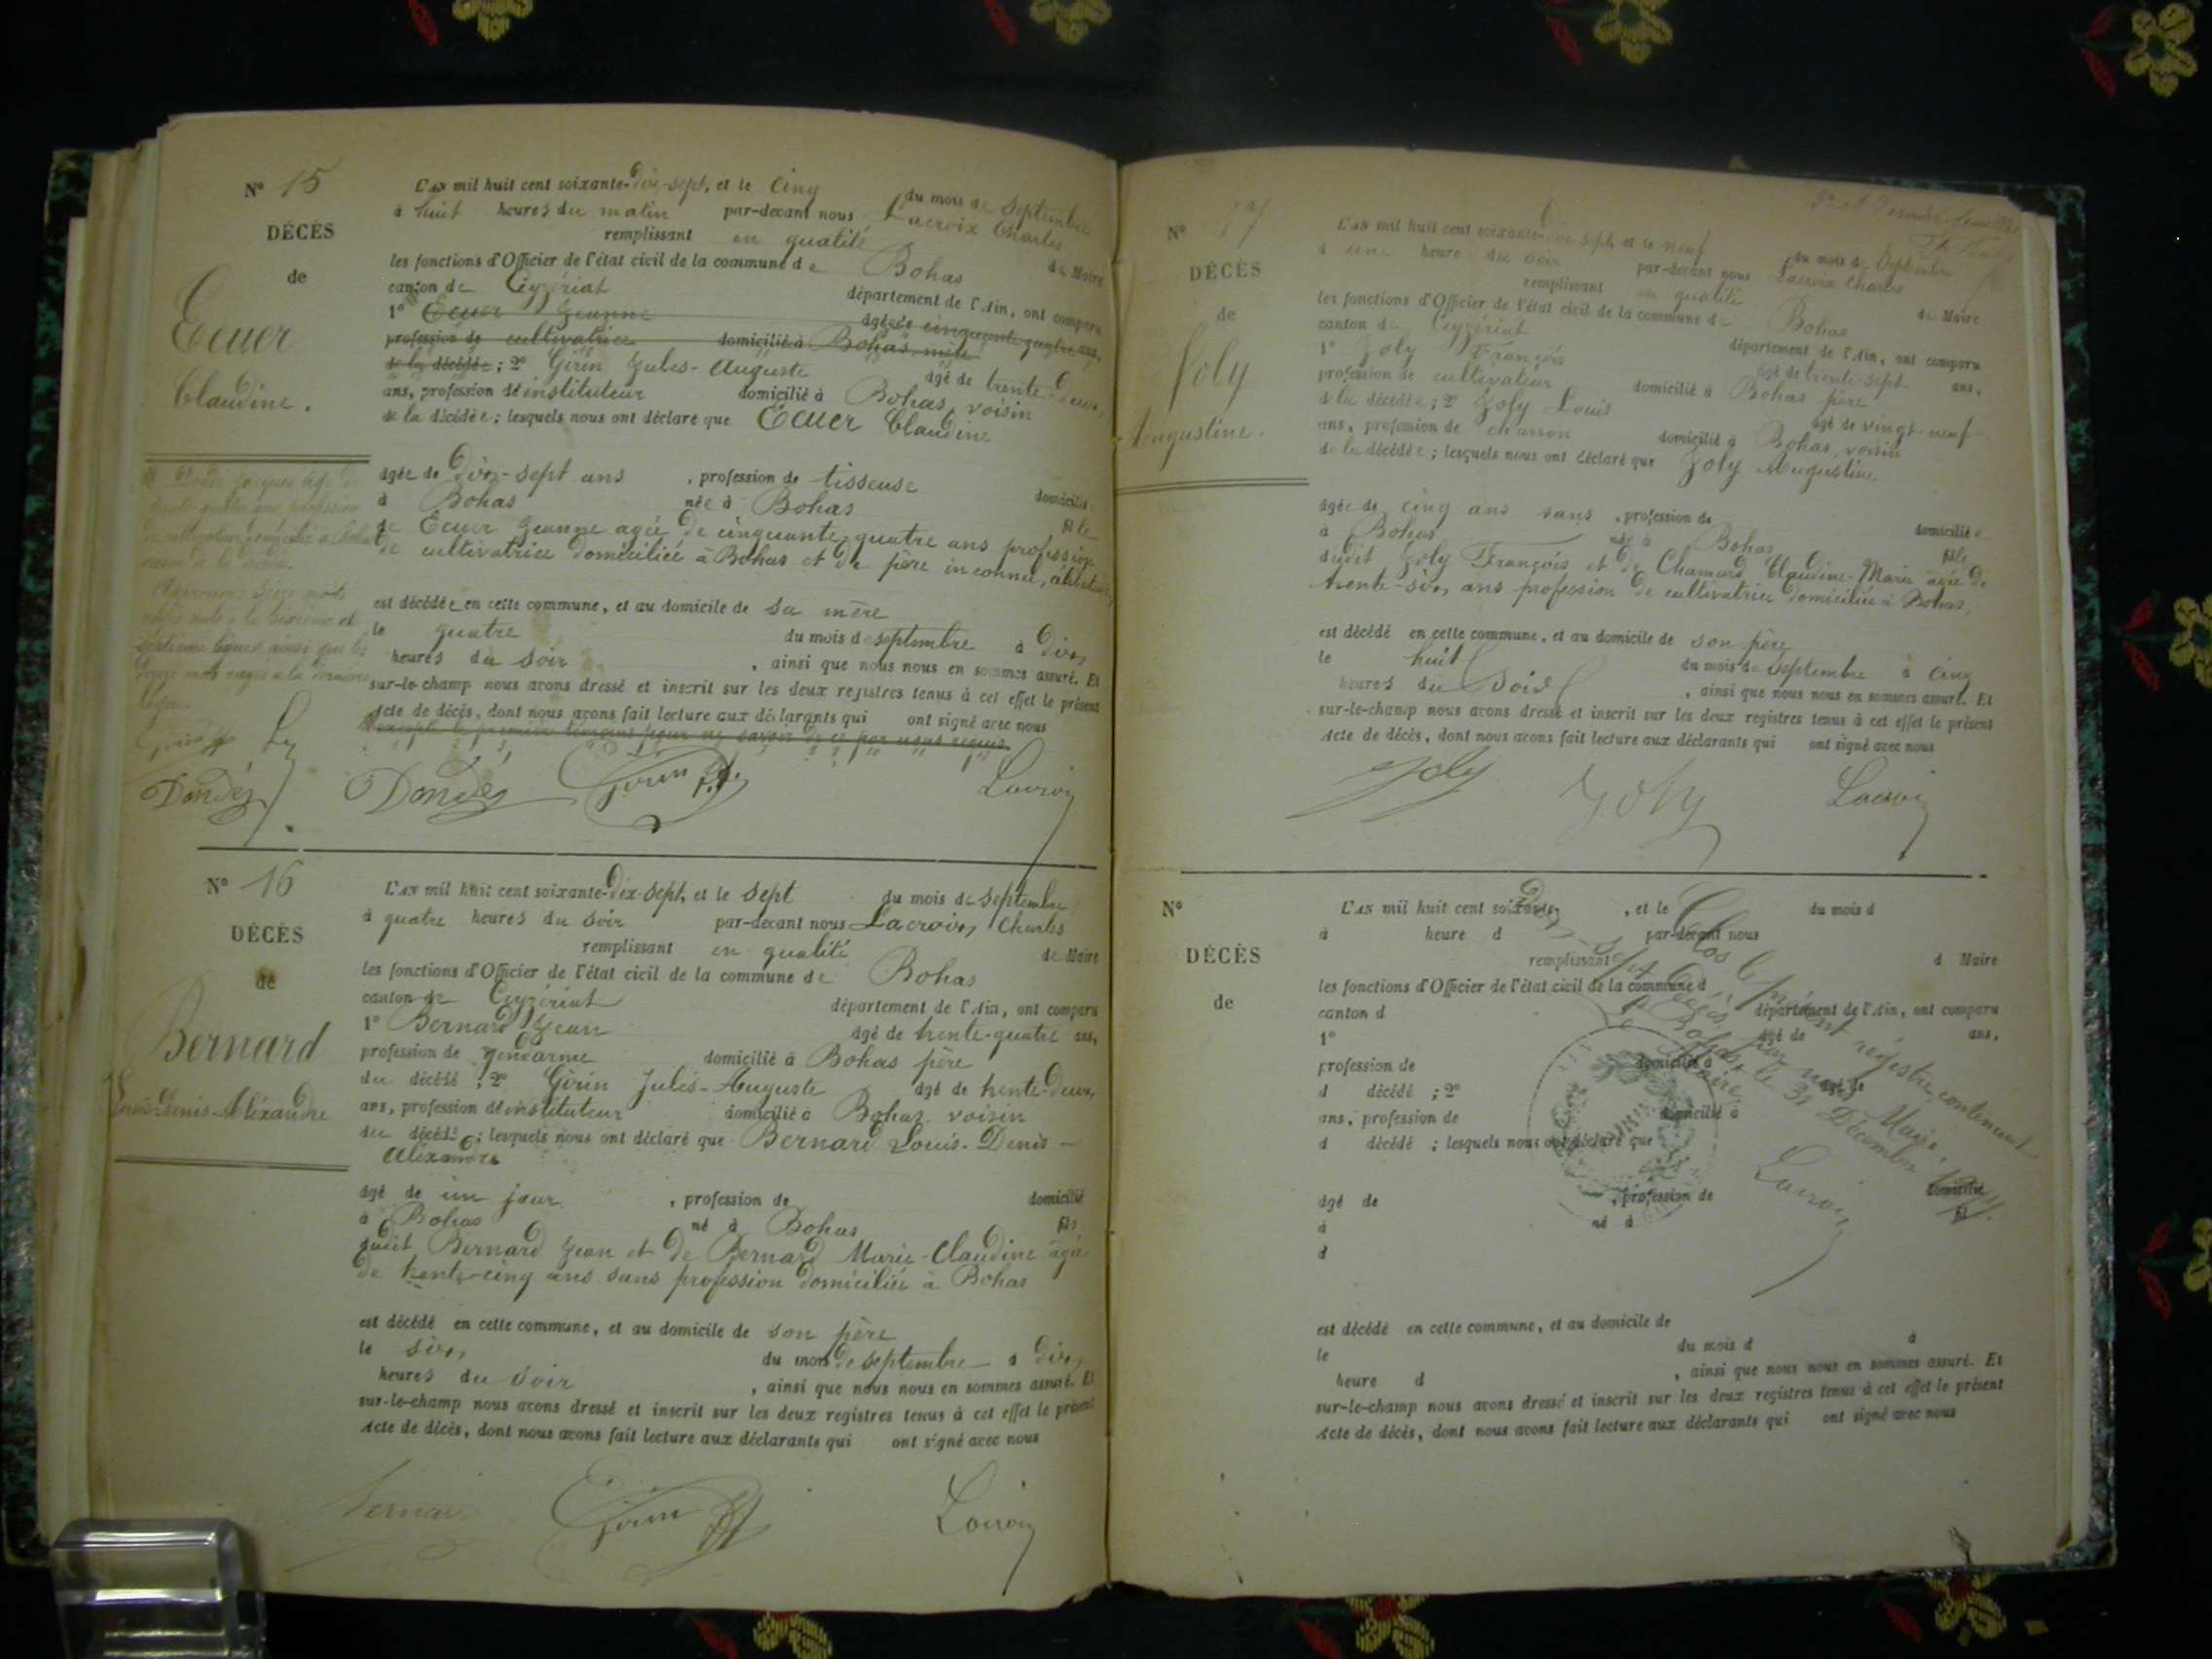 N° 15
DÉCÈS
de
Ecuer
Claudine.
L'AN mil huit cent soixante-dix-sept, et le cinq du mois de Septembre
à huit heures du matin par-devant nous Lacroix Charles
remplissant en qualité de Maire
les fonctions d'Officier de l'état civil de la commune de Bohas
canton de Ceyzériat département de l'Ain, ont comparu
1° Ecuer Jeanne âgée de cinquante quatre ans,
profession de cultivatrice domicilié à Bohas, mère
de la décédée ; 2° Girin Jules-Auguste âgé de trente-deux
ans, profession d'instituteur domicilié à Bohas, voisin
de la décédée ; lesquels nous ont déclaré que Ecuer Claudine
âgée de dix-sept ans , profession de tisseuse domicilié
à Bohas née à Bohas fille
de Ecuer Jeanne agée de cinquante-quatre ans profession
de cultivatrice domiciliée à Bohas et de père inconnu,
est décédée en cette commune, et au domicile de sa mère
le quatre du mois de septembre à dix
heures du soir , ainsi que nous nous en sommes assuré. Et
sur-le-champ nous avons dressé et inscrit sur les deux registres tenus à cet effet le présent
Acte de décès, dont nous avons fait lecture aux déclarants qui ont signé avec nous
excepté le premier témoin pour ne savoir de ce par nous requis.
Dondez Girin Lacroix
Dondez
N° 16
DÉCÈS
de
Bernard
Louis-Denis-Aléxandre
L'AN mil huit cent soixante-dix-sept, et le sept du mois de septembre
à quatre heures du soir par-devant nous Lacroix Charles
remplissant en qualité de Maire
les fonctions d'Officier de l'état civil de la commune de Bohas
canton de Ceyzériat département de l'Ain, ont comparu
1° Bernard Jean âgé de trente-quatre ans,
profession de gendarme domicilié à Bohas père
du décédé ; 2° Girin Jules-Auguste âgé de trente-deux
ans, profession d'instituteur domicilié à Bohas voisin
du décédé ; lesquels nous ont déclaré que Bernard Louis-Denis-
Aléxandre
âgé de un jour , profession de domicilié
à Bohas né à Bohas fils
dudit Bernard Jean et de Bernard Marie-Claudine agée
de trente-cinq ans sans profession domiciliée à Bohas
est décédé en cette commune, et au domicile de son père
le six du mois de septembre à dix
heures du soir , ainsi que nous nous en sommes assuré. Et
sur-le-champ nous avons dressé et inscrit sur les deux registres tenus à cet effet le présent
Acte de décès, dont nous avons fait lecture aux déclarants qui ont signé avec nous
Bernard Girin Lacroix
N° 17
DÉCÈS
de
Joly
Augustine.
L'AN mil huit cent soixante-dix-sept, et le neuf du mois de Septembre
à une heure du soir par-devant nous Lacroix Charles
remplissant en qualité de Maire
les fonctions d'Officier de l'état civil de la commune de Bohas
canton de Ceyzériat département de l'Ain, ont comparu
1° Joly François âgé de trente-sept ans,
profession de cultivateur domicilié à Bohas père
de la décédée ; 2° Joly Louis âgé de vingt-neuf
ans, profession de charron domicilié à Bohas, voisin
de la décédée ; lesquels nous ont déclaré que Joly Augustine
âgée de cinq ans sans , profession de domicilié e
à Bohas née à Bohas fille
dudit Joly François et de Chamard Claudine-Marie agée de
trente-six ans profession de cultivatrice domiciliée à Bohas,
est décédé en cette commune, et au domicile de son père
le huit du mois de Septembre à cinq
heures du soir , ainsi que nous nous en sommes assuré. Et
sur-le-champ nous avons dressé et inscrit sur les deux registres tenus à cet effet le présent
Acte de décès, dont nous avons fait lecture aux déclarants qui ont signé avec nous
Joly Joly Lacroix
N°
DÉCÈS
de
L'AN mil huit cent soixante- , et le du mois d
à heure d par-devant nous
remplissant d Maire
les fonctions d'Officier de l'état civil de la commune d
canton d département de l'Ain, ont comparu
1° âgé de ans,
profession de domicilié à
d décédé ; 2° âgé de
ans, profession de domicilié à
d décédé ; lesquels nous ont déclaré que
âgé de , profession de domicilié
à né à fil
d
est décédé en cette commune, et au domicile de
le du mois d à
heure d , ainsi que nous nous en sommes assuré. Et
sur-le-champ nous avons dressé et inscrit sur les deux registres tenus à cet effet le présent
Acte de décès, dont nous avons fait lecture aux déclarants qui ont signé avec nous
Clos le présent régistre contenant
Dix-sept Décès, par nous Maire,
à Bohas, le 31 Décembre 1877.
Le Maire,
Lacroix